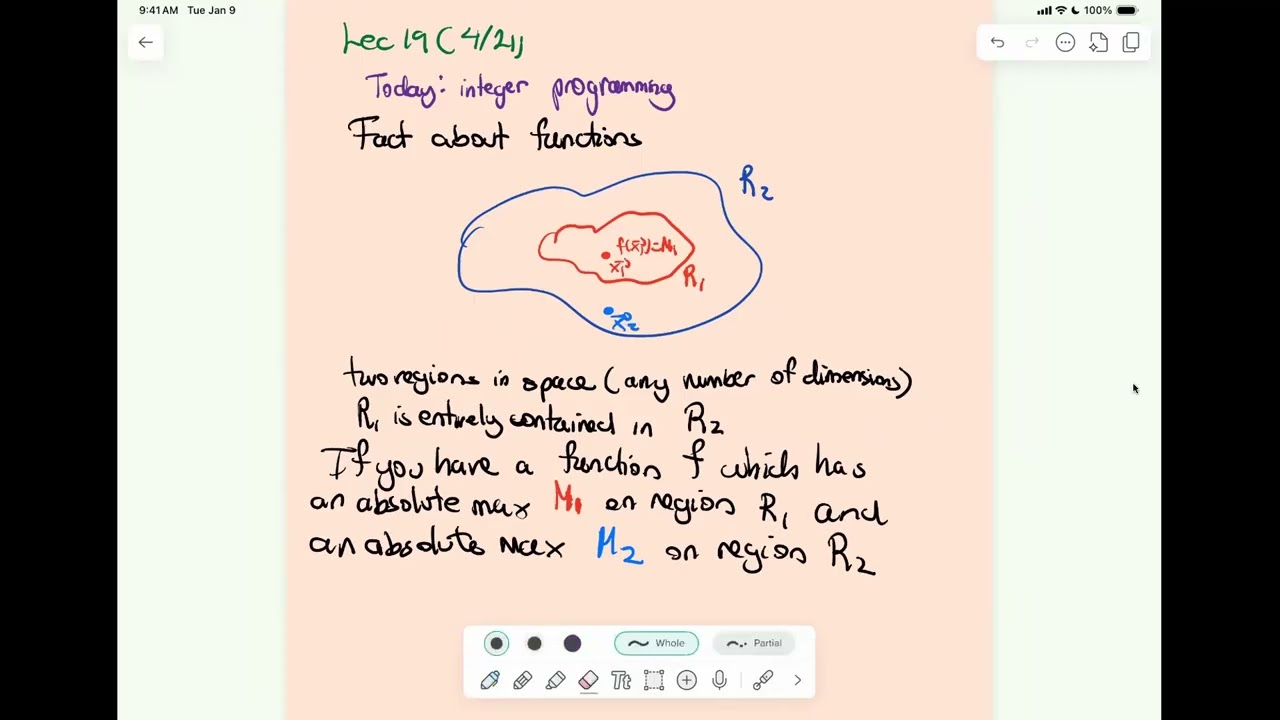 9:41 AM Tue Jan 9
100%
Lec 19 (4/21)
Today: integer programming
Fact about functions
R2
f(x⃗1)=M1
x⃗1
R1
x⃗2
two regions in space (any number of dimensions)
R1 is entirely contained in R2
If you have a function f which has
an absolute max M1 on region R1 and
an absolute max M2 on region R2
Whole
Partial
Tt